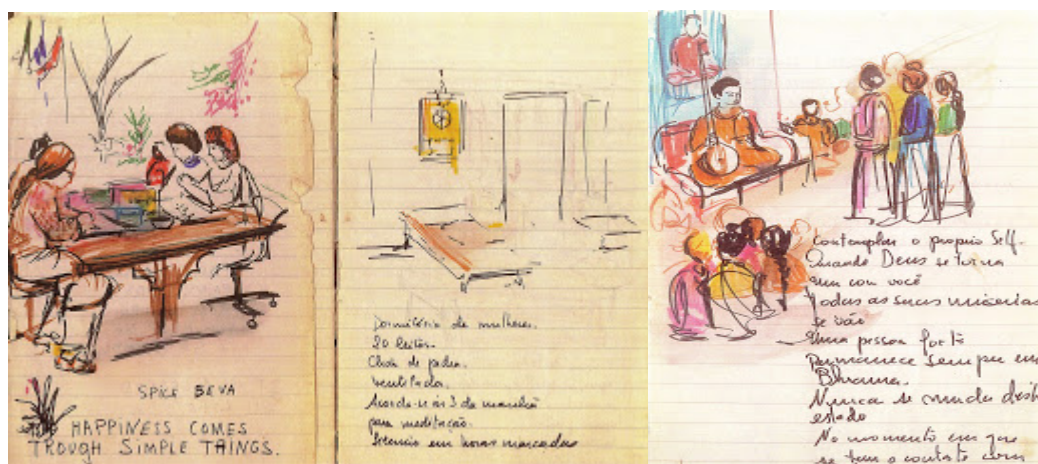 SPICE SEVA
HAPPINESS COMES
TROUGH SIMPLE THINGS.
Dormitório de mulheres.
20 leitos.
Chão de pedra.
Ventilador.
Acorda-se às 3 da manhã
para meditação.
Silêncio em horas marcadas
Contemplar o proprio Self.
Quando Deus se torna
um com você
todas as suas miserias
se vão
Uma pessoa forte
permanece sempre em
Bhrama.
Nunca se muda deste
estado
No momento em que
se tem o contato com